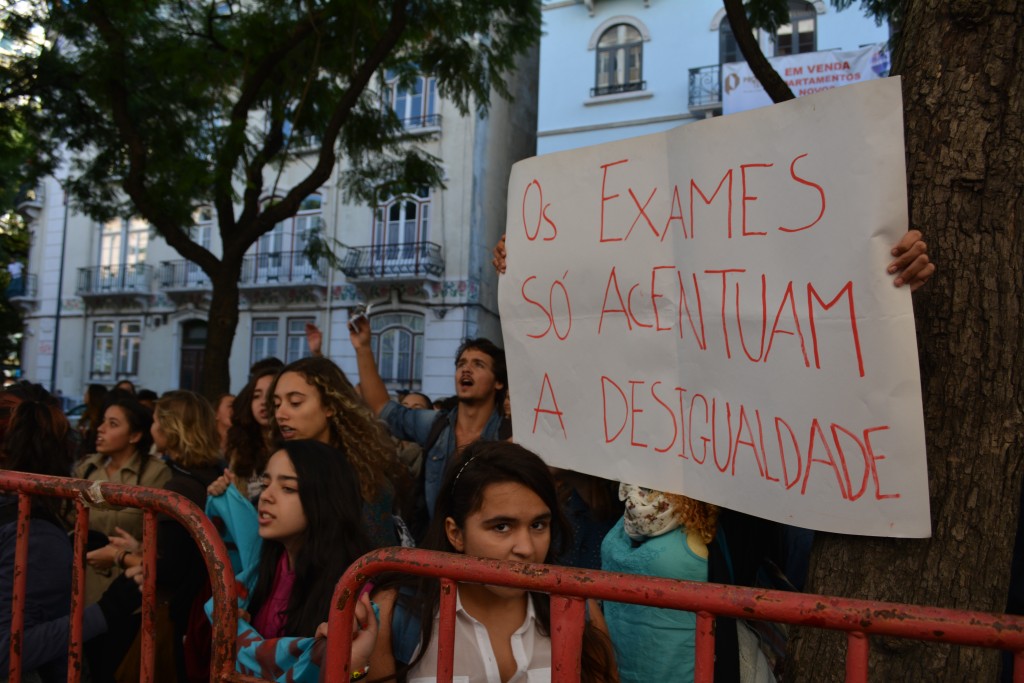 EM VENDA
APARTAMENTOS
NOVOS
OS EXAMES
SÓ ACENTUAM
A DESIGUALDADE